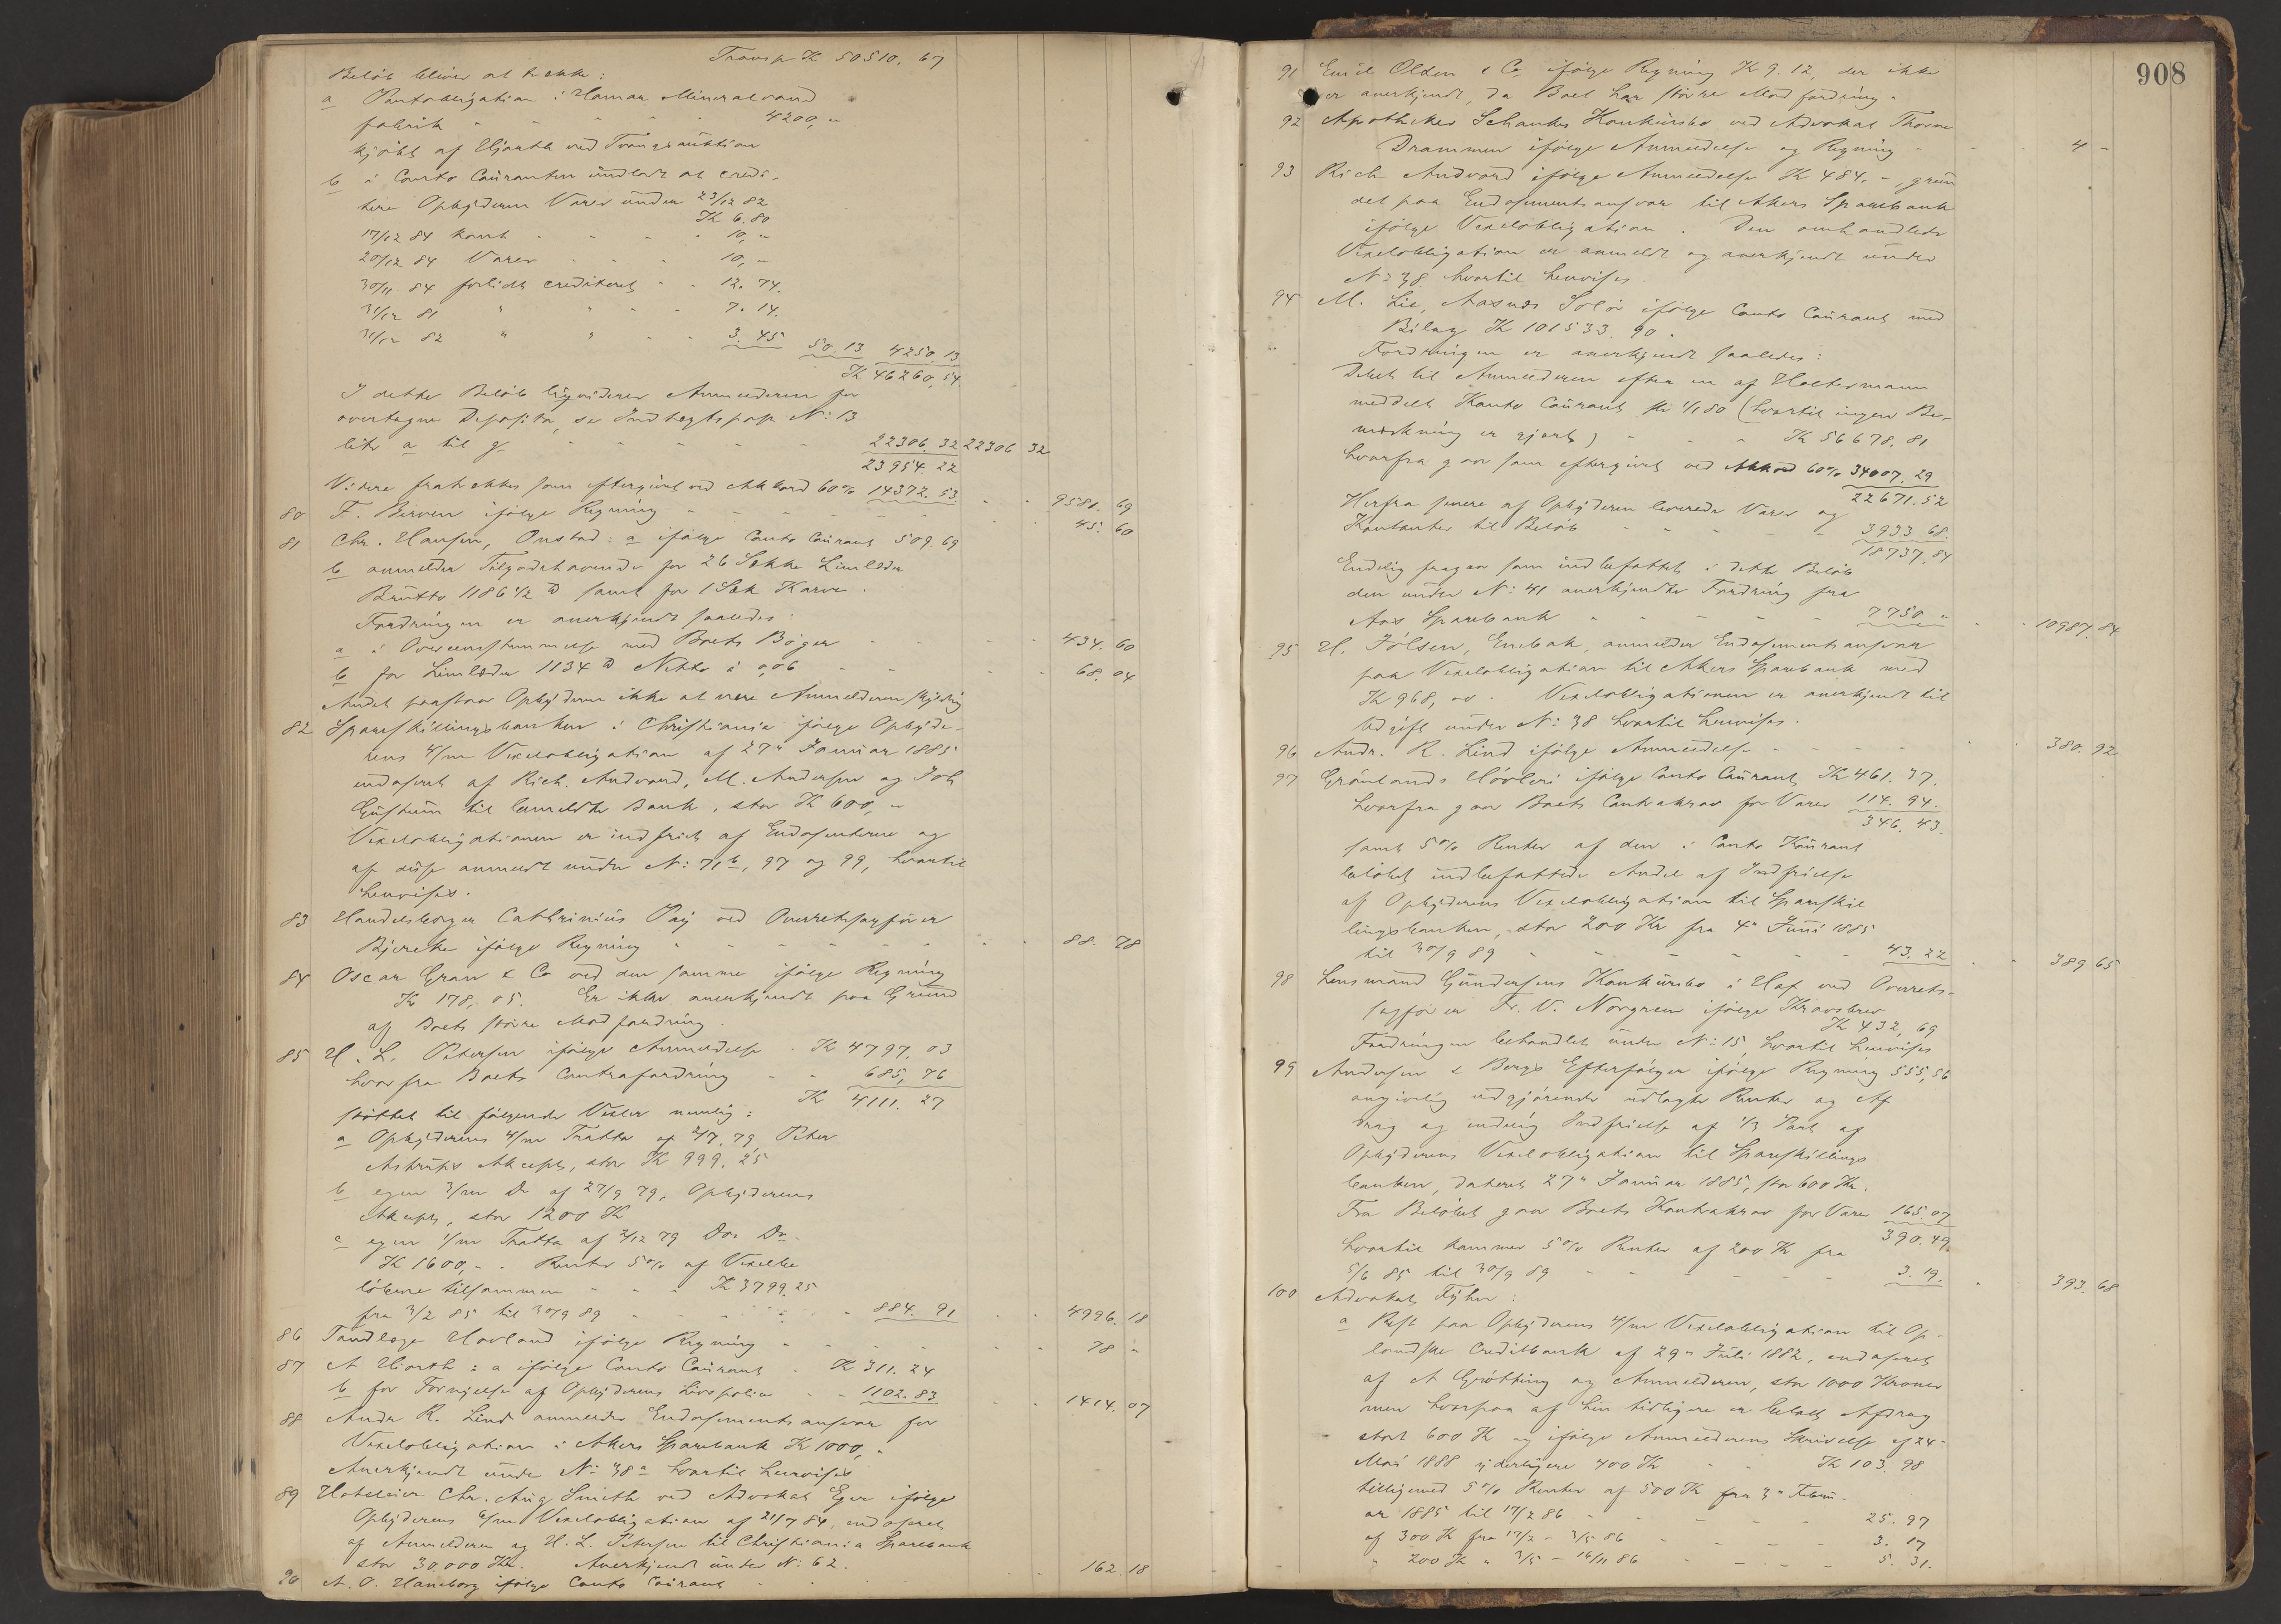 Transp K 50510. 67
Beløb bliver at trække:
a Pantobligation i Hamar Mineralvand
fabrik - - - - - 4200, -
kjøbt af Hjorth ved Tvangsauktion
b i Conto Couranten undladt at credi-
tere Opbyderen Varer under 23/12 82
K 6.80
17/12 84 kont - - - - 10, -
20/12 84 Varer - - - 10, -
30/11 84 forlidt crediteret - - 12. 74.
31/12 81 " " - - 7. 14.
31/12 82 " " - - 3. 45 50. 13 4250. 13
K 46260, 54
I dette Beløb liqviderer Anmelderen for
overtagne Deposita, se Indtægtspost N: 13
litr a til g. - - - - - 22306. 32 22306 32
23954. 22
Videre fratrækkes som eftergivet ved Akkord 60% 14372. 53 - - 9581. 69
80 F. Berven ifølge Regning - - - - - - 45. 60
81 Chr. Hansen, Onstad: a ifølge Conto Courant 509. 69
b anmelder Tilgodehavende for 26 Sække Limlæder
Brutto 1186 1/2 ℔ samt for 1 Sæk Karve.
Fordringen er anerkjendt saaledes:
a i Overeensstemmelse med Boets Bøger - - - - 434. 60
b for Limlæder 1134 ℔ Netto à 0,06 - - - 68. 04
Andet paastaar Opbyderen ikke at være Anmelderen skyldig
82 Spareskillingsbanken i Christiania ifølge Opbyde-
rens 4/m Vexelobligation af 27" Januar 1885
endosseret af Rich. Andvord, M. Andersen og Joh
til bemeldte Bank, stor K 600, -
Vexelobligationen er indfriet af Endossenterne og
af disse anmeldt under N: 71 b, 97 og 99, hvortil
henvises.
83 Handelsborger Cathrinius Pay ved Overretssagfører
Bjercke ifølge Regning - - - - - - 88. 78
84 Oscar Gran & Co ved den samme ifølge Regning
Kr 178, 05. Er ikke anerkjendt paa Grund
af Boets større Modfordring.
85 H. L. Petersen ifølge Anmeldelse - K 4797. 03
hvorfra Boets Contrafordring - - 685, 76
K 4111. 27
støttet til følgende Vexler nemlig:
a Opbyderens 4/m Tratta af 2/7. 79, Peter
Astrups Akcept, stor K 999, 25
b egen 3/m Do af 27/9 79, Opbyderens
Akcept, stor 1200 K
c egen 1/m Tratta af 2/12 79 Do Do
K 1600, -. Renter 5% af Vexelbe
løbene tilsammen - - - K 3799. 25
fra 3/2 85 til 30/9 89 - - - - 884. 91 - - 4996. 18
86 Tandlæge Havland ifølge Regning - - - - - - 78 -
87 A Hiorth: a ifølge Conto Courant - K 311. 24
b for Fornyelse af Opbyderens Livspolice - - 1102. 83 - - 1414. 07
88 Andr R. Lind anmelder Endossementsansvar for
Vexelobligation i Akers Sparebank K 1000, -
Anerkjendt under N: 38 a hvortil henvises
89 Hotelleier Chr. Aug Smith ved Advokat Eger ifølge
Opbyderens 6/m Vexelobligation af 21/7 84, endosseret
af Anmelderen og H. L. Petersen til Christiania Sparebank
stor 30.000 Kr. Anerkjendt under N: 62.
90 A. O. Haneborg ifølge Conto Courant - - 162. 18
908
91 Emil Olsen & Co ifølge Regning K 9. 12, der ikke
er anerkjendt, da Boet har større Modfordring.
92 Apotheker Schanks Konkursbo ved Advokat Thorne
Drammen ifølge Anmeldelse og Regning - - - 4 -
93 Rich Andvord ifølge Anmeldelse K 484, -, grun
det paa Endossementsansvar til Akers Sparebank
ifølge Vexelobligation. Den omhandlede
Vexelobligation er anmeldt og anerkjendt under
N: 38 hvortil henvises.
94 M. Lie, Aasnæs Solør ifølge Conto Courant med
Bilag K 101533. 90.
Fordringen er anerkjendt saaledes:
Debet til Anmelderen efter en af Holtermann
meddelt Konto Courant pr 1/1 80 (hvortil ingen Be-
mærkning er gjort) - - - K 56678. 81
hvorfra gaar som eftergivet ved Akkord 60% 34007. 29
22671. 52
Herfra senere af Opbyderen leverede Varer og
Kontanter til Beløb - - - - 3933. 68.
18737. 84
Endelig fragaar som indbefattet i dette Beløb
den under N: 41 anerkjendte Fordring fra
Aas Sparebank - - - - - 7750 - - - 10987. 84
95 H. Jølsen, Enebak, anmelder Endossementsansvar
paa Vexelobligation til Akers Sparebank med
K 968, 00. Vexelobligationen er anerkjendt til
Udgift under N: 38 hvortil henvises.
96 Andr. R. Lind ifølge Anmeldelse - - - - - - 380. 92
97 Grønlands Høvleri ifølge Conto Courant K 461. 37.
hvorfra gaar Boets Contrakrav for Varer 114. 94.
346. 43.
samt 5% Renter af den i Conto Courant
beløbet indbefattede Andel af Indfrielse
af Opbyderens Vexelobligation til Spareskil
lingsbanken, stor 200 Kr fra 4" Juni 1885
til 30/9 89 - - - - - - 43. 22 - - 389 65
98 Lensmand Gundersens Konkursbo i Hof ved Overrets-
sagfører Fr. V. Norgren ifølge Kravsbrev
K 432, 69
Fordringen behandlet under N: 15, hvortil henvises
99 Andersen & Bergs Efterfølger ifølge Regning 555, 56
angivelig udgjørende udlagte Renter og Af
drag og endelig Indfrielse af 1/3 Part af
Opbyderens Vexelobligation til Spareskillings
banken, dateret 27" Januar 1885, stor 600 Kr.
Fra Beløbet gaar Boets Kontrakrav for Varer 165. 07
390. 49
hvortil kommer 5% Renter af 200 K fra
5/6 85 til 30/9 89 - - - - - 3. 19. - - 393. 68
100 Advokat :
a Rest paa Opbyderens 4/m Vexelobligation til Op-
landske Creditbank af 29" Juli 1882, endosseret
af A Grøtting og Anmelderen, stor 1000 Kroner
men hvorpaa af hin tidligere er betalt Afdrag
stort 600 K og ifølge Anmelderens Skrivelse af 24-
Mai 1888 yderligere 400 K - - K 103. 98
tilligemed 5% Renter af 500 K fra 3" Febru-
ar 1885 til 17/2 86 - - - - - 25. 97
af 300 K fra 17/2 - 3/5 86 - - - - 3. 17
" 200 K " 3/5 - 16/11 86 - - - - 5. 31.